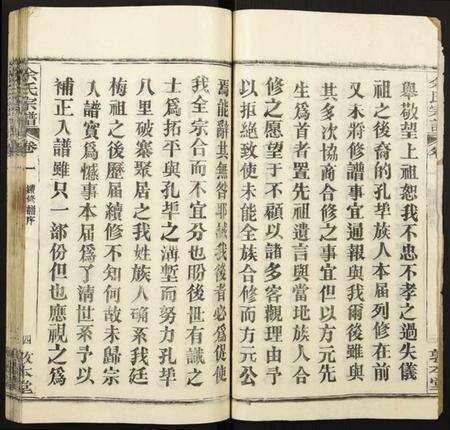 與敬望上祖恕我不忠不孝之過失儀
祖之後裔的孔埠族人本届列修在前
又未將修譜事宜通報與我爾後雖與
其多次協商合修之事宜但以方元先
生爲首者置先祖遺言與當地族人合
修之愿望于不顧以諸多客觀理由予
以拒絕致使未能全族合修而方元公
焉能辭其無咎耶緘我後者必爲從使
我全宗合而不宜分也盼後世有識之
士爲拓平與孔埠之溝塹而努力孔埠
八里破寨聚居之我姓族人確系我廷
梅祖之後歷屆續修不知何故未歸宗
入譜實爲憾事本届爲了清世系予以
補正入譜雖只一部份但也應視之爲
余氏宗譜
卷一
續修譜序
四
敦本堂